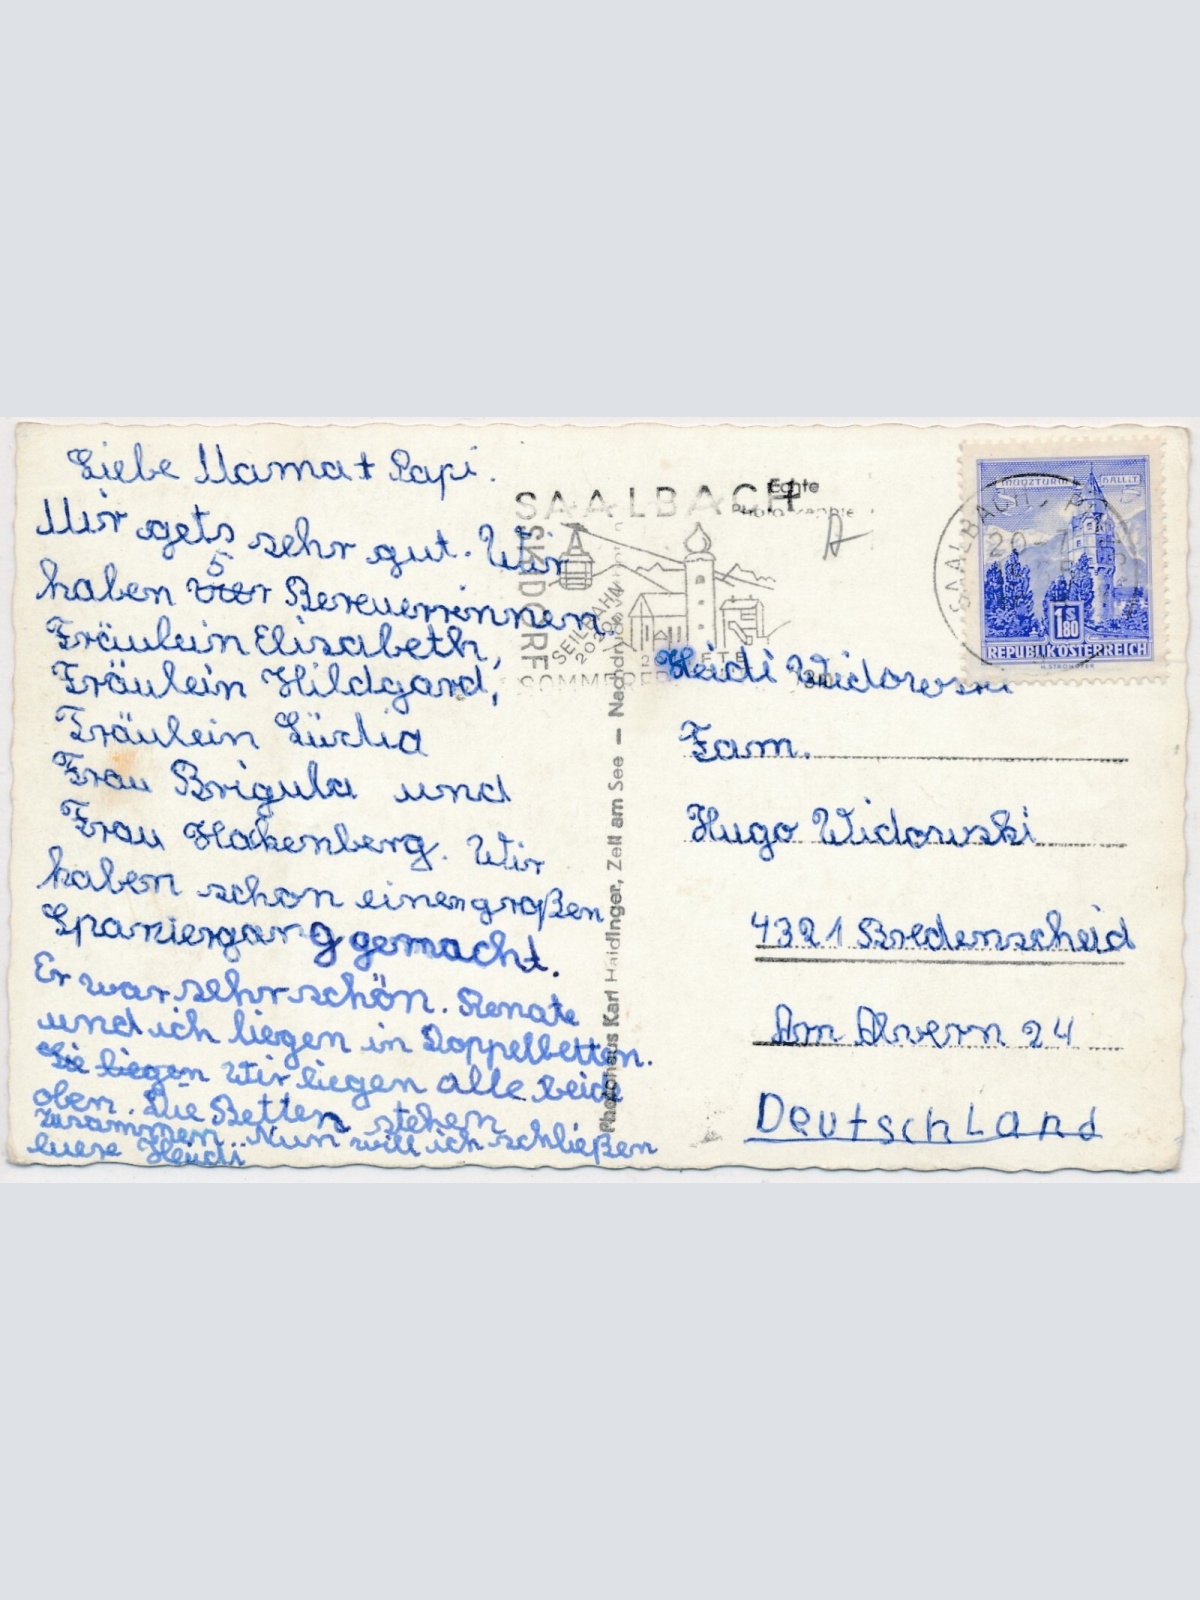 Liebe Mama + Papi.
Mir gets sehr gut. Wir
5
haben vier Bereuerrinnen.
Fräulein Elisabeth,
Fräulein Hildgard,
Fräulein Lüdia
Frau Brigula und
Frau Hakenberg. Wir
haben schon einen großen
Spaziergang gemacht.
Er war sehr schön. Renate
und ich liegen in Doppelbetten.
Sie liegen Wir liegen alle beide
oben. Die Betten stehen
zusammen. Nun will ich schließen
euere Heidi
SAALBACH
SKIDORF
SEILBAHN
SOMMER
Echte
Photographie
Photohaus Karl Haidinger, Zell am See — Nachdruck
SAALBACH
20.-7.
MÜNZTURM HALL I.T.
1 S 80
REPUBLIK ÖSTERREICH
Heidi Widowski
Fam.
Hugo Widowski
4321 Bredenscheid
Am Alvern 24
Deutschland